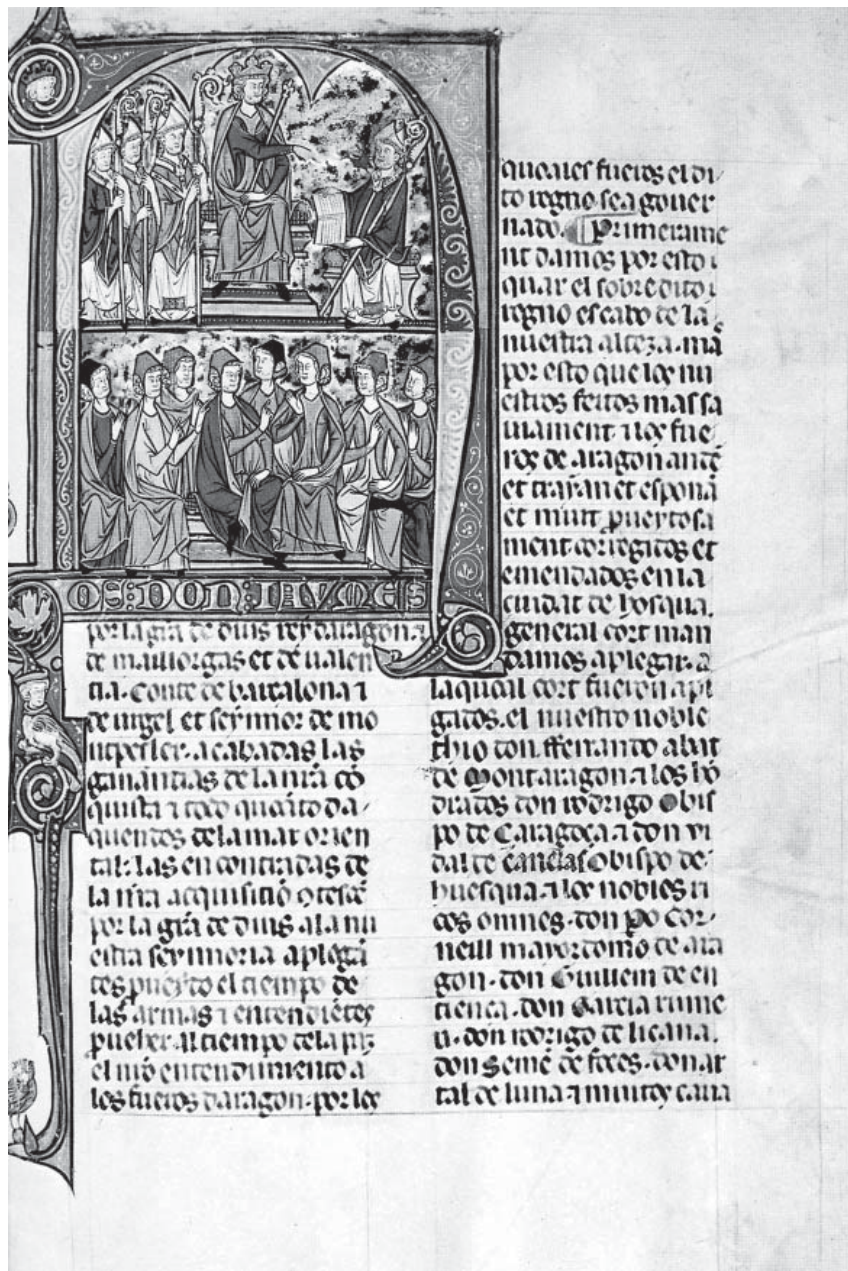 OS : DON : IAVMES
por la gr̃a de dius rey daragon ⁊
de maillorgas et de ualen
tia. Conte de barcalona ⁊
de urgel et seynnor de mo
ntpesler. acabadas las
ganantias de la nr̃a cõ
quista ⁊ todo quanto da
quent es de la mar orien
tal: las encontradas de
la nr̃a acquisitiõ
por la gr̃a de dius a la nu
estra seynnoria aplega
des el tiempo de
las armas ⁊ entendiẽtes
al tiempo de la paz
el nr̃o entendimiento a
los fueros daragon. por los
quoales fueros el di
to regno sea gouer
nado. Primerame
nt damos por esto
quar el sobredito
regno es cabo de la
nuestra alteza. mã
por esto que los nu
estros feitos mas sa
uiament ⁊ los fue
ros de aragon antẽ
et trayan et esponã
et muit prueytosa
ment corregitos et
emendados en la
ciudat de hosqua.
general cort man
damos aplegar. a
la quoal cort fueron apl
gados. el nuestro noble
thio don fferrando abat
de Montaragon ⁊ los hõ
drados don rodrigo Obis
po de Caragoça ⁊ don vi
dal de Canelas Obispo de
huesqua. ⁊ los nobles ri
cos omnes. don po Cor
neill mayordomo de ara
gon. don Guillem de en
tienca. don Garcia rume
u. don rodrigo de liçana.
don Semẽ de foces. don ar
tal de luna ⁊ muitos caua